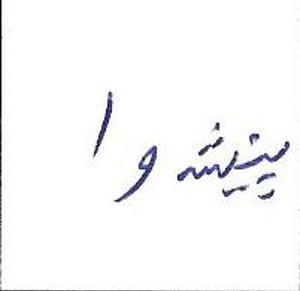 پیشوا